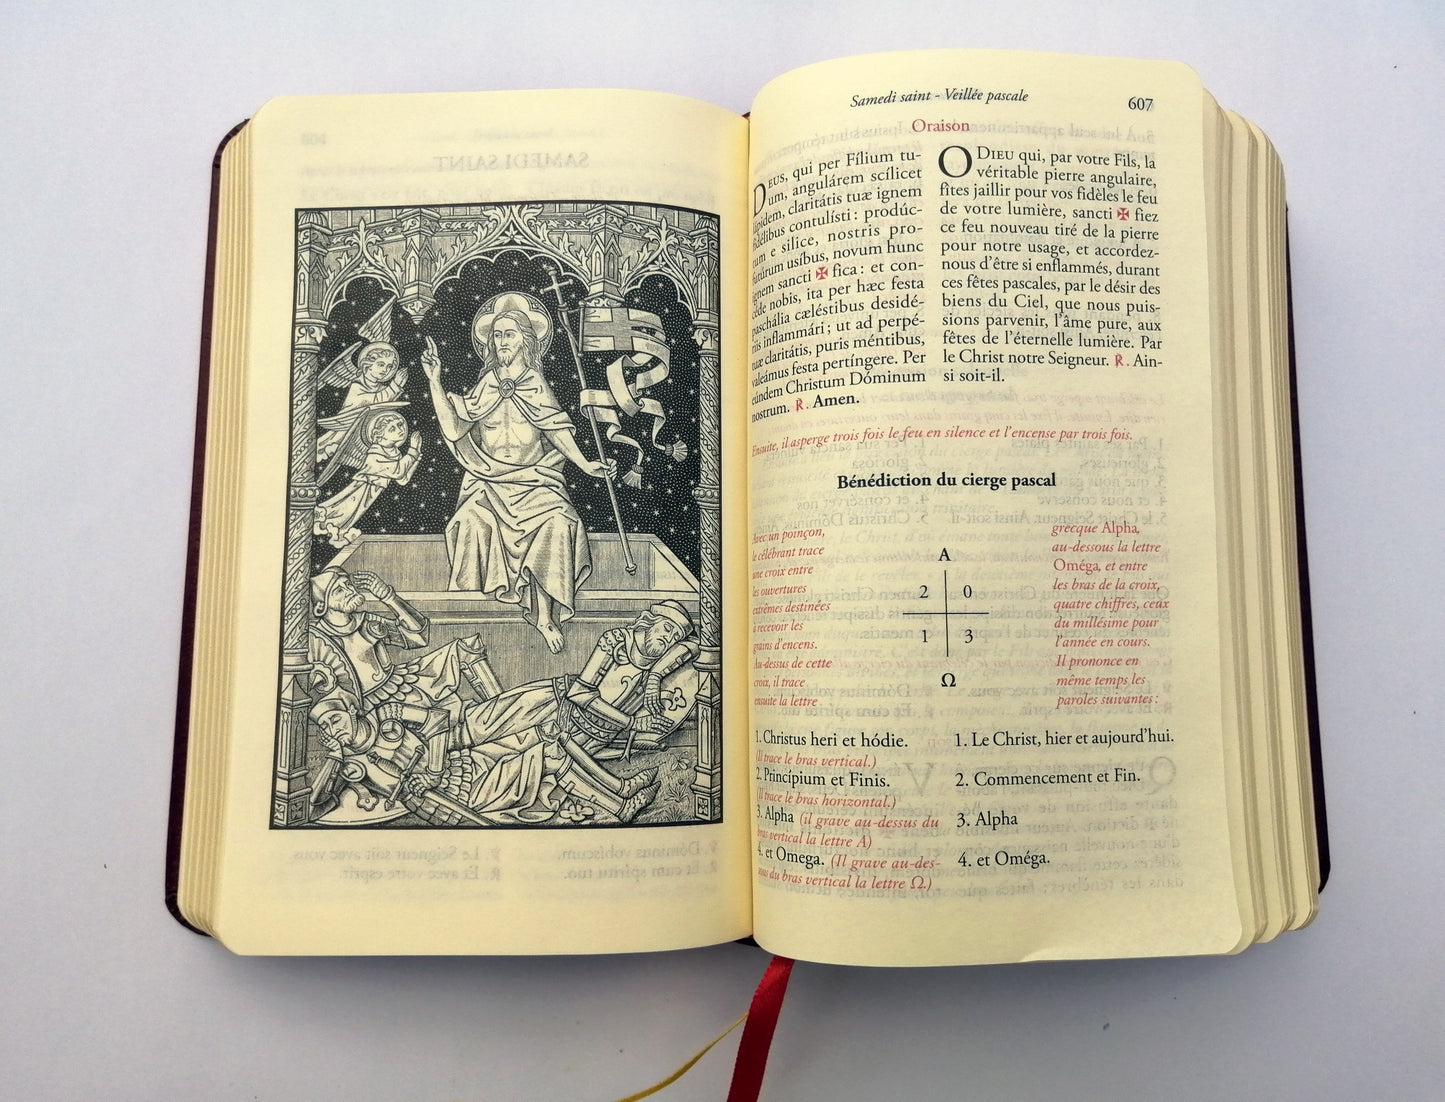 Samedi saint - Veillée pascale
607
Oraison
DEUS, qui per Fílium tu-
um, angulárem scílicet
lápidem, claritátis tuæ ignem
fidélibus contulísti : prodúc-
tum e silice, nostris pro-
futúrum usíbus, novum hunc
ignem sancti ✠ fica : et con-
céde nobis, ita per hæc festa
paschália cæléstibus desidé-
riis inflammári ; ut ad perpé-
tuæ claritátis, puris méntibus,
valeámus festa pertíngere. Per
eúndem Christum Dóminum
nostrum. ℟. Amen.
O DIEU qui, par votre Fils, la
véritable pierre angulaire,
fîtes jaillir pour vos fidèles le feu
de votre lumière, sancti ✠ fiez
ce feu nouveau tiré de la pierre
pour notre usage, et accordez-
nous d'être si enflammés, durant
ces fêtes pascales, par le désir des
biens du Ciel, que nous puis-
sions parvenir, l'âme pure, aux
fêtes de l'éternelle lumière. Par
le Christ notre Seigneur. ℟. Ain-
si soit-il.
Ensuite, il asperge trois fois le feu en silence et l'encense par trois fois.
Bénédiction du cierge pascal
Avec un poinçon,
le célébrant trace
une croix entre
les ouvertures
extrêmes destinées
à recevoir les
grains d'encens.
Au-dessus de cette
croix, il trace
ensuite la lettre
A
2 0
1 3
Ω
grecque Alpha,
au-dessous la lettre
Oméga, et entre
les bras de la croix,
quatre chiffres, ceux
du millésime pour
l'année en cours.
Il prononce en
même temps les
paroles suivantes :
1. Christus heri et hódie.
(Il trace le bras vertical.)
2. Princípium et Finis.
(Il trace le bras horizontal.)
3. Alpha (il grave au-dessus du
bras vertical la lettre A)
4. et Omega. (Il grave au-des-
sous du bras vertical la lettre Ω.)
1. Le Christ, hier et aujourd'hui.
2. Commencement et Fin.
3. Alpha
4. et Oméga.